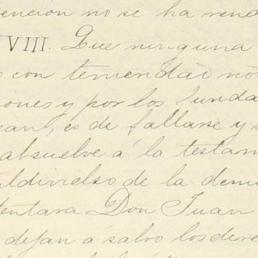 vención no se ha rend
VIII. Que ninguna
con temeridad no
ones y por los funda
ean, es de fallarse y
absuelve á la testam
aldivielso de la dem
entara Don Juan
dejan á salvo los dere